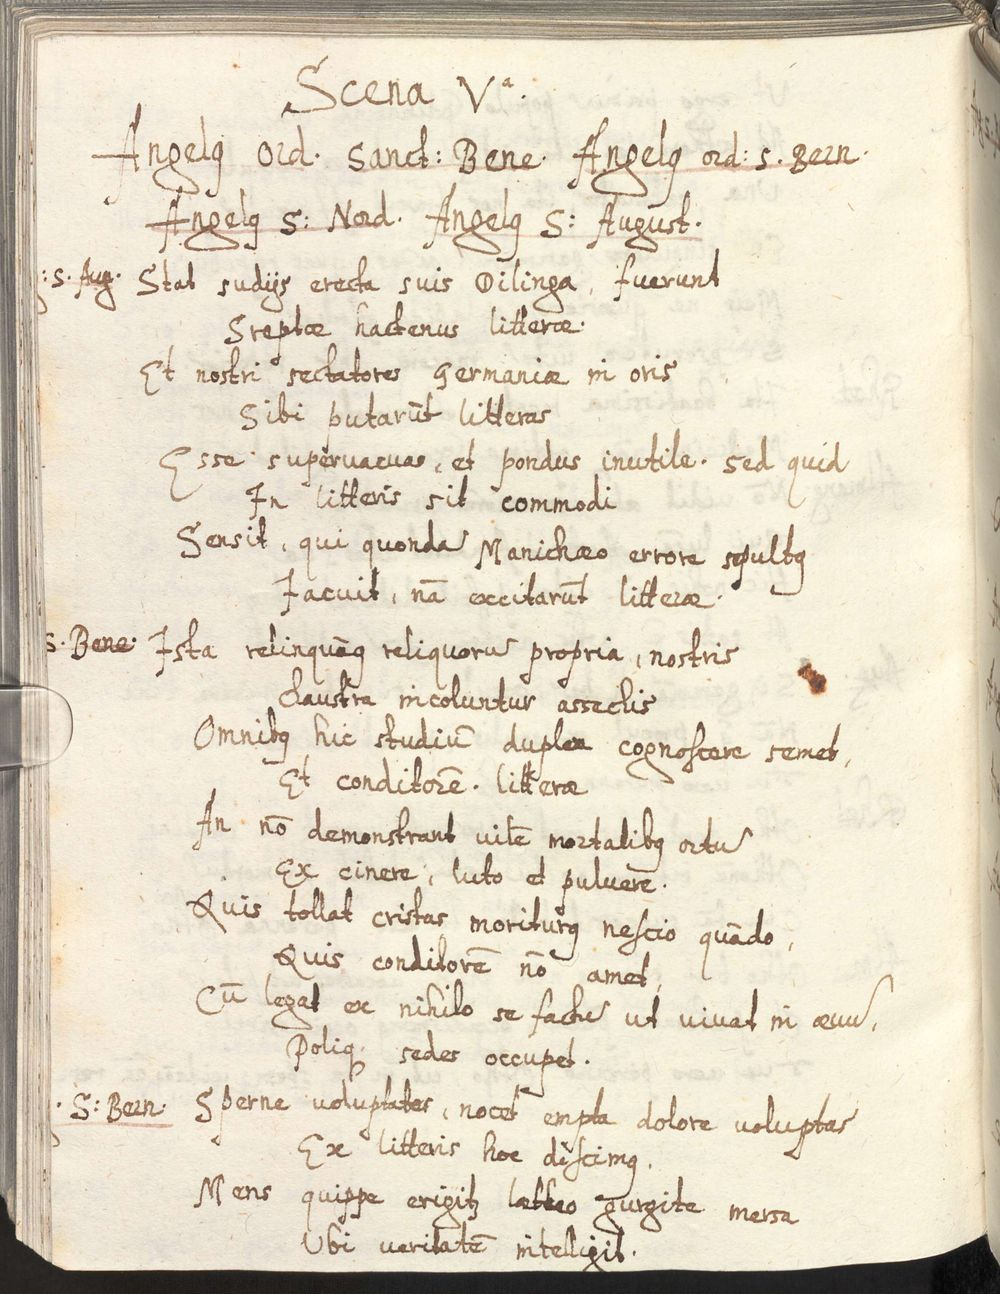 Scena Vª.
Angelꝯ Ord. Sanct: Bene. Angelꝯ ord: s. Bern.
Angelꝯ S: Nord. Angelꝯ S: August.
: s. Aug. Stat sudijs erecta suis Dilinga, fuerunt
Sreptæ hactenus litteræ.
Et nostri sectatores germaniæ in oris
Sibi putarūt litteras
Esse supervacuas, et pondus inutile. sed quid
In litteris sit commodi
Sensit, qui quonda Manichæo errore sepultꝯ
Jacuit, nā excitarūt litteræ.
s. Bene. Ista relinquāꝯ reliquoru propria, nostris
Claustra incoluntur asseclis
Omnibꝯ hic studiū duplex cognoscere semet,
Et conditorē. litteræ
An nō demonstrant uitē mortalibꝯ ortu
Ex cinere, luto et puluere.
Quis tollat cristas moriturꝯ nescio quādo,
Quis conditorē nō amet,
Cū legat ex nihilo se factu ut uiuat in æuu,
Poliqꝫ sedes occupet.
. S: Bern. Sperne uoluptates, nocet empta dolore uoluptas
Ex litteris hoc discimꝯ.
Mens quippe erigitꝫ gurgite mersa
Ubi ueritatē inteligit.